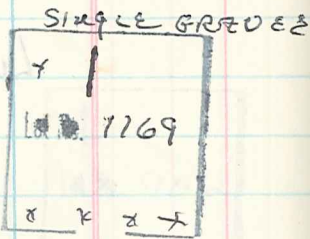 SINGLE GRAVES
x
Lot No. 1169
x x x x